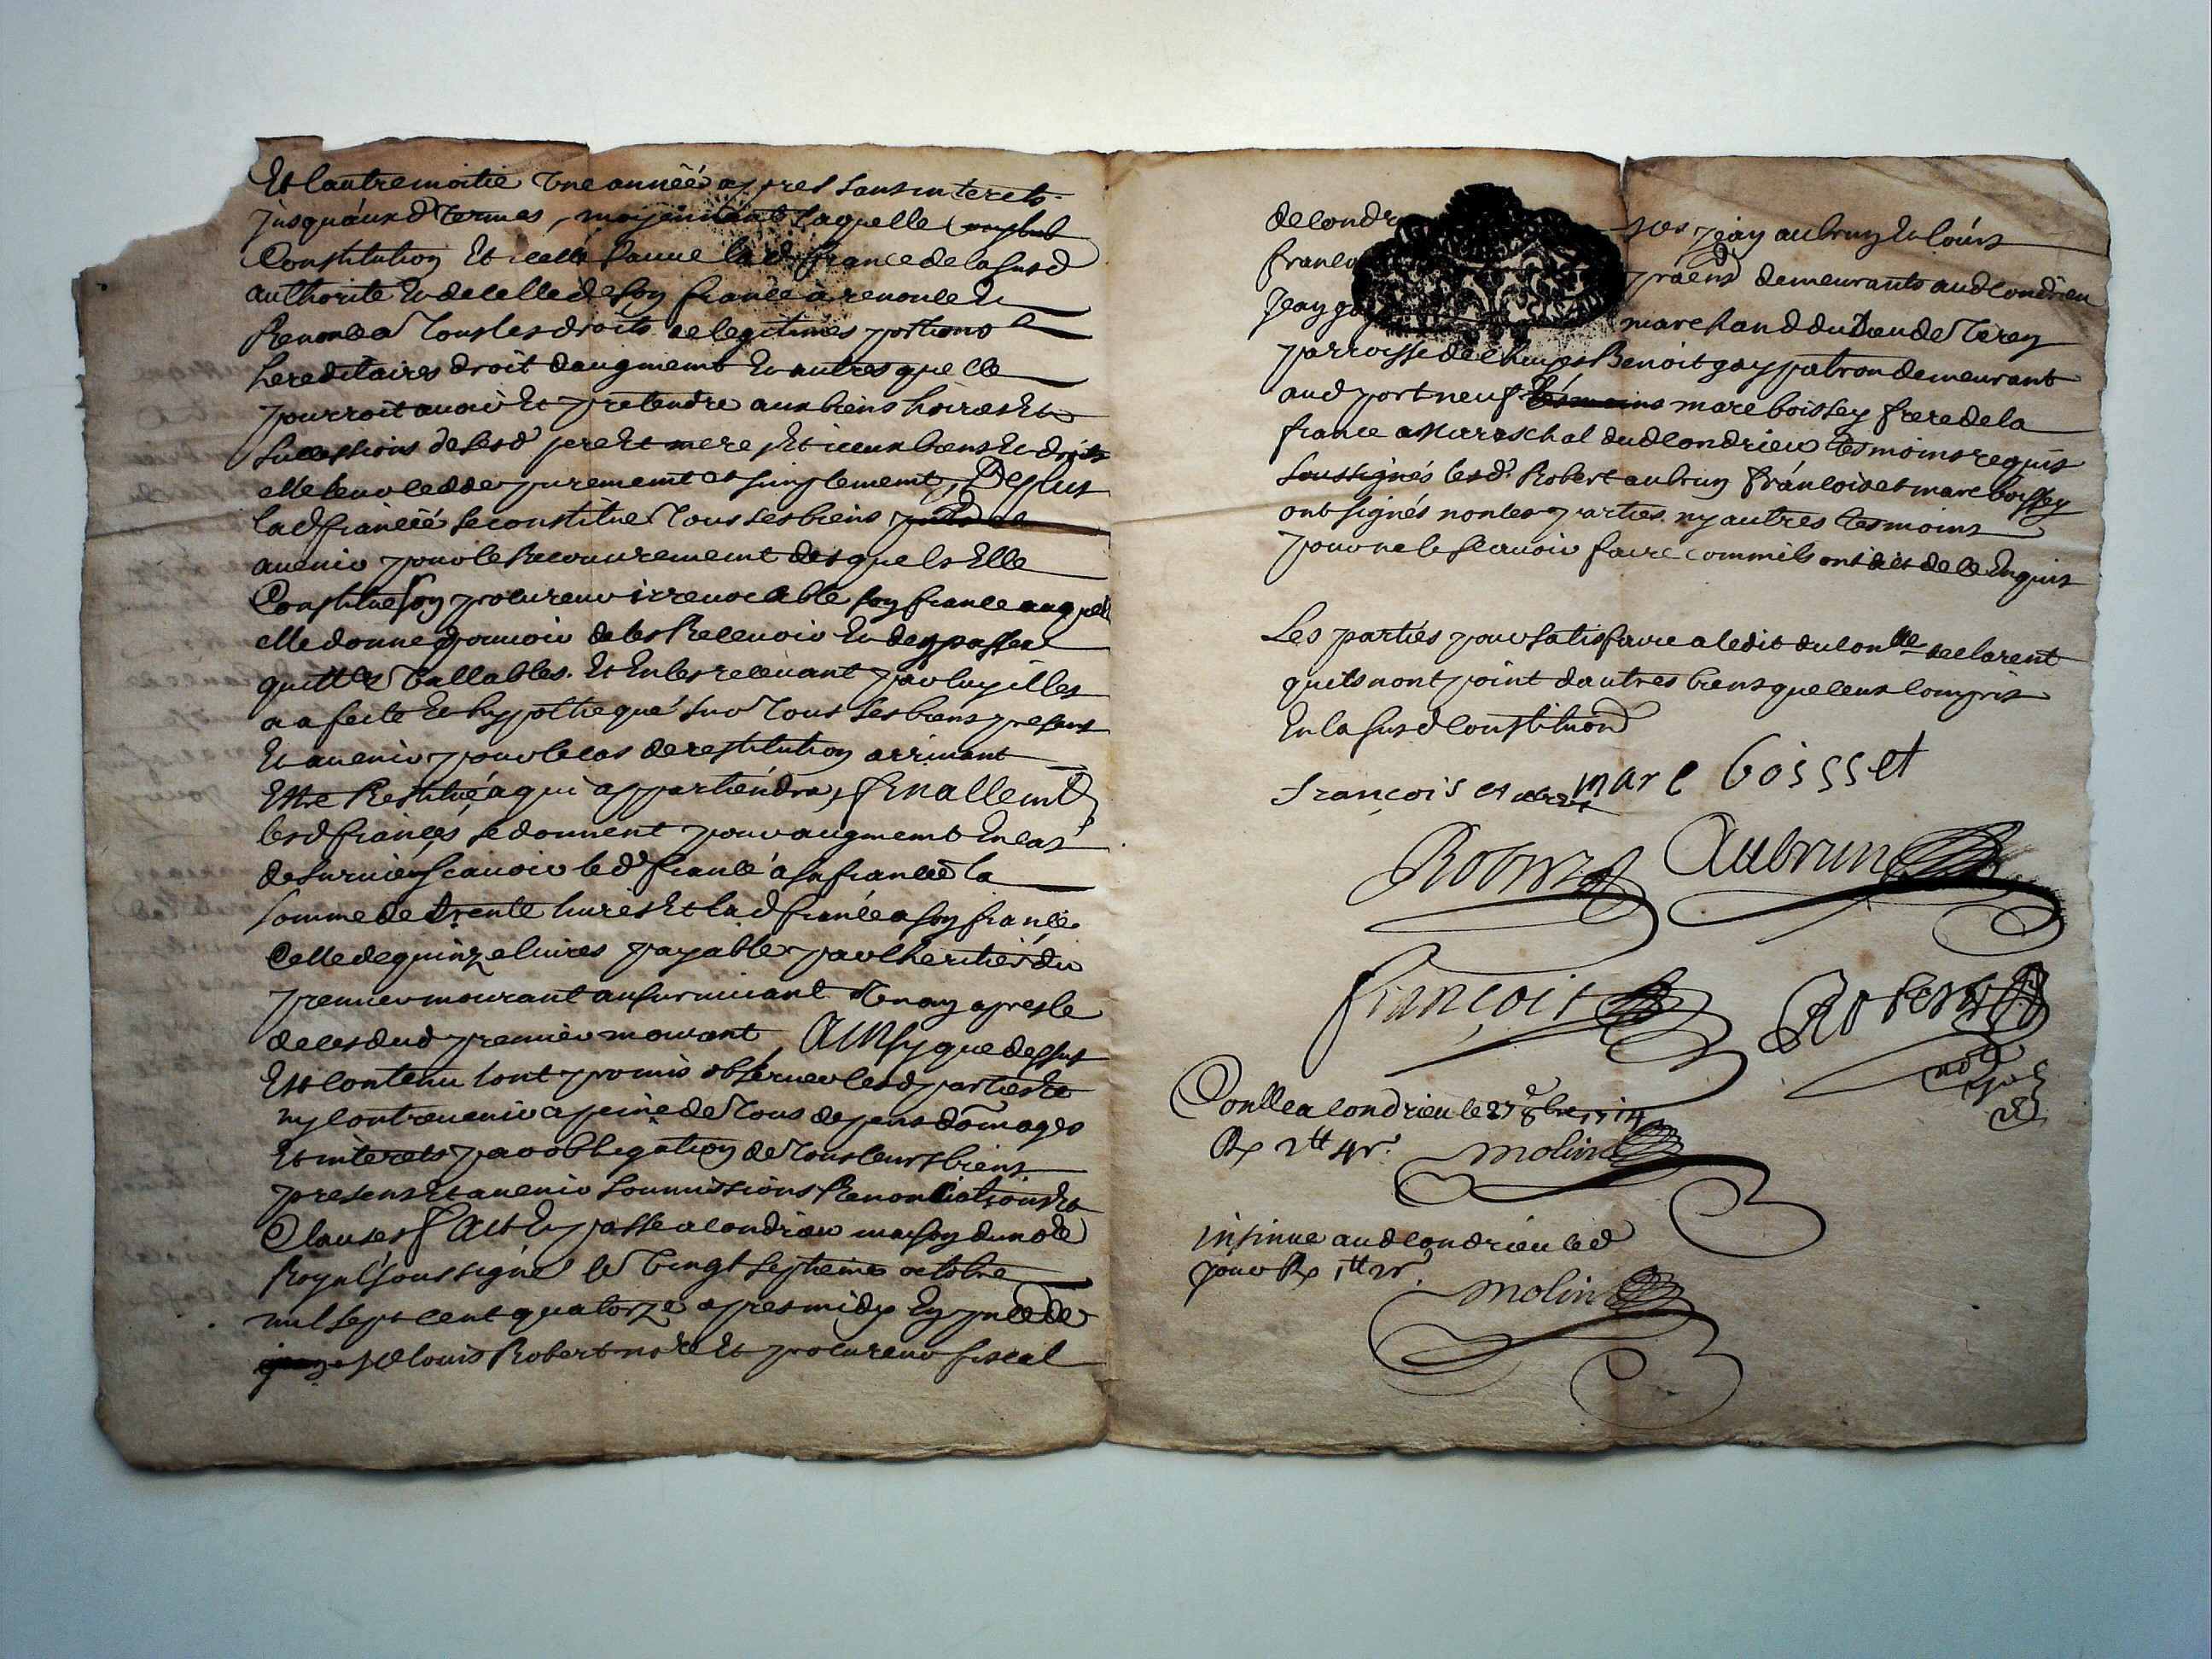 Et lautre moitie une année apres sans interets
jusquausd termes, moyennant laquelle
Constitution Et icelle lad fiancee de la susd
authorité Et de celle de son fiancé a renoncé Et
Renonce a tous les droits de legitimes portions
hereditaires droit daugment Et autres quelle
pourroit avoir Et pretendre aux biens hoiries Et
successions de sesd pere Et mere Et iceux biens Et droits
elle purement et simplement, De plus
lad fiancée se constitue tous ses biens
avenir pour le Recouvrement desquels Elle
Constitue son procureur irrevocable son fiance auquel
elle donne pouvoir de les Recevoir Et den passer
quittes vallables. Et En les recevant par luy illes
a afecté Et hypothequé sur tous ses biens presens
Et avenir pour le cas de restitution arrivant
Estre Restitué a qui appartiendra, finallemt
lesd fiancés se donnent pour augment En cas
de survie scavoir led fiancé a sa fiancée la
somme de trente livres Et lad fiancée a son fiancé
Celle de quinze livres payable par lheritier du
premier mourant au survivant Un an apres le
deces dud premier mourant, Ainsy que dessus
Est contenu lont promis observer lesd parties Et
ny contrevenir a peine de tous depens domages
Et interets par obligation de tous leurs biens
presens Et avenir soumissions Renonciations Et
Clauses fait Et passé a condrieu maison du notre
Royal soussigné le vingt septieme octobre
mil sept cent quatorze apres midy En pnce de
sr louis Robert nore Et procureur fiscal
de condr jean aubrun Et louis
francois demeurants aud condrieu
jean gay marchand du lieu de Verey
parroisse de Benoit gay patron demeurant
aud port neuf marc boissey frere de la
fiance Mareschal dud condrieu tesmoins requis
soussignés lesd Robert aubrun françois et marc boissey
ont signés non les parties ny autres tesmoins
pour ne le scavoir faire comme ils ont dit de ce Enquis
Les parties pour satisfaire a ledit du conlle declarent
quils nont point dautres biens que ceux compris
En la susd constituon
françois marc boissset
Robert Aubrun
françois Robert
nore
Conlle a condrieu le 27 8bre 1714
Rx 2tt 4s.
Molin
insinue aud condrieu led
jour Rx 1tt 2s.
Molin